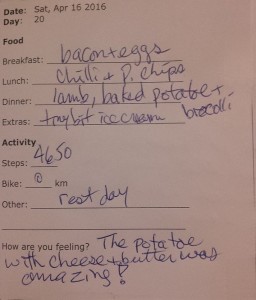 Date: Sat, Apr 16 2016
Day: 20
Food
Breakfast: bacon+eggs
Lunch: Chilli + P. Chips
Dinner: lamb, baked potatoe +
brocolli
Extras: tiny bit icecream
Activity
Steps: 4650
Bike: 0 km
Other: rest day
How are you feeling? The potatoe
with cheese + butter was
amazing!